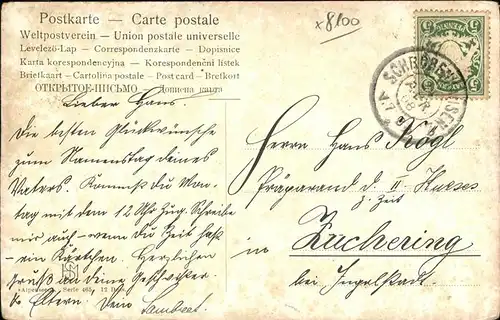 Postkarte — Carte postale
Weltpostverein — Union postale universelle
Levelező-Lap — Correspondenzkarte — Dopisnice
Karta korespondencyjna — Korespondenční lístek
Brietkaart — Cartolina postale — Post card — Brefkort
ОТКРЫТОЕ-ПИСЬМО — Дописна карта
x 8100
BAYERN
SCHROBENHAUSEN
Lieber Hans.
Die besten Glückwünsche
zum Namenstag deines
Vaters. Kommst du Mon-
tag mit dem 12 Uhr Zug. Schreibe
mir auch — wenn du Zeit hast
— ein Kärtchen. Herzlichen
Gruß an deine Geschwister
& Eltern. Dein
Serie 465
Herrn Hans Kögl
Präparand d. II Kurses
z. Zeit
in Zuchering
bei Ingolstadt.